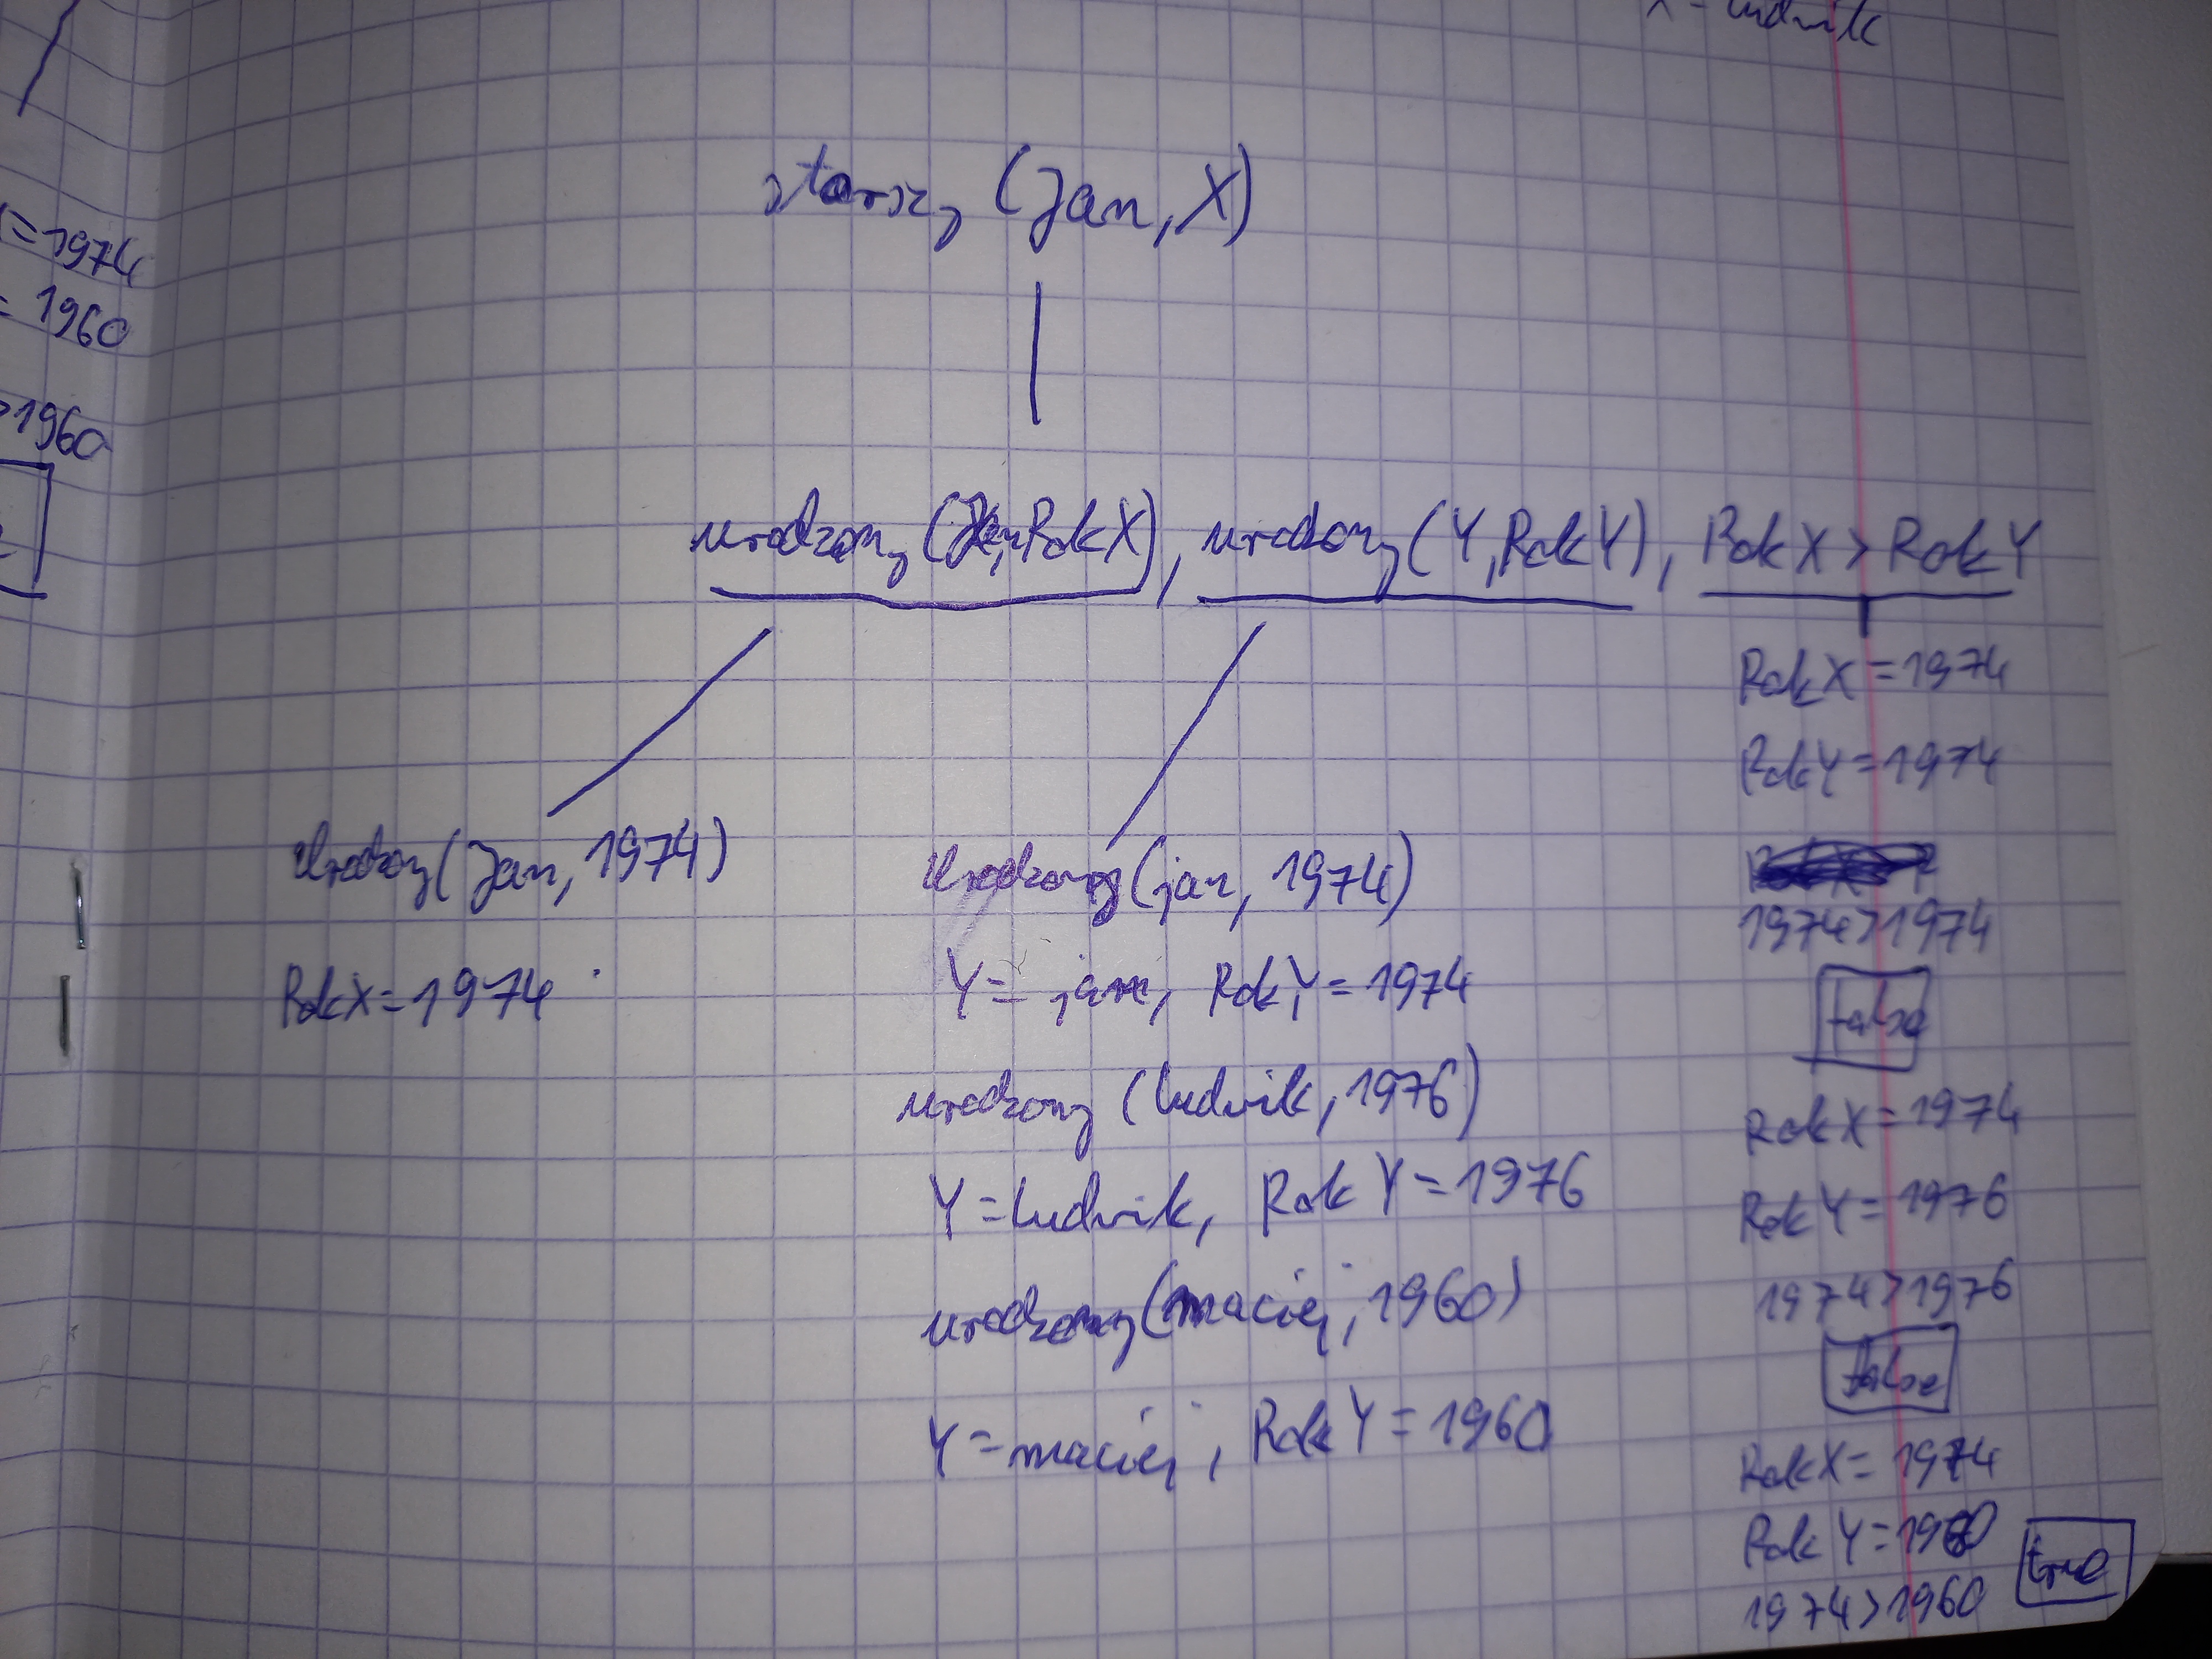 X = ludwik
=1974
= 1960
>1960
starszy (Jan, X)
urodzony (Jan, RokX), urodzony (Y, RokY), RokX > RokY
urodzony (Jan, 1974)
RokX = 1974
urodzony (jan, 1974)
Y = jan, RokY = 1974
urodzony (ludwik, 1976)
Y = ludwik, RokY = 1976
urodzony (maciej, 1960)
Y = maciej, RokY = 1960
RokX = 1974
RokY = 1974
1974 > 1974
false
RokX = 1974
RokY = 1976
1974 > 1976
false
RokX = 1974
RokY = 1960
1974 > 1960
true